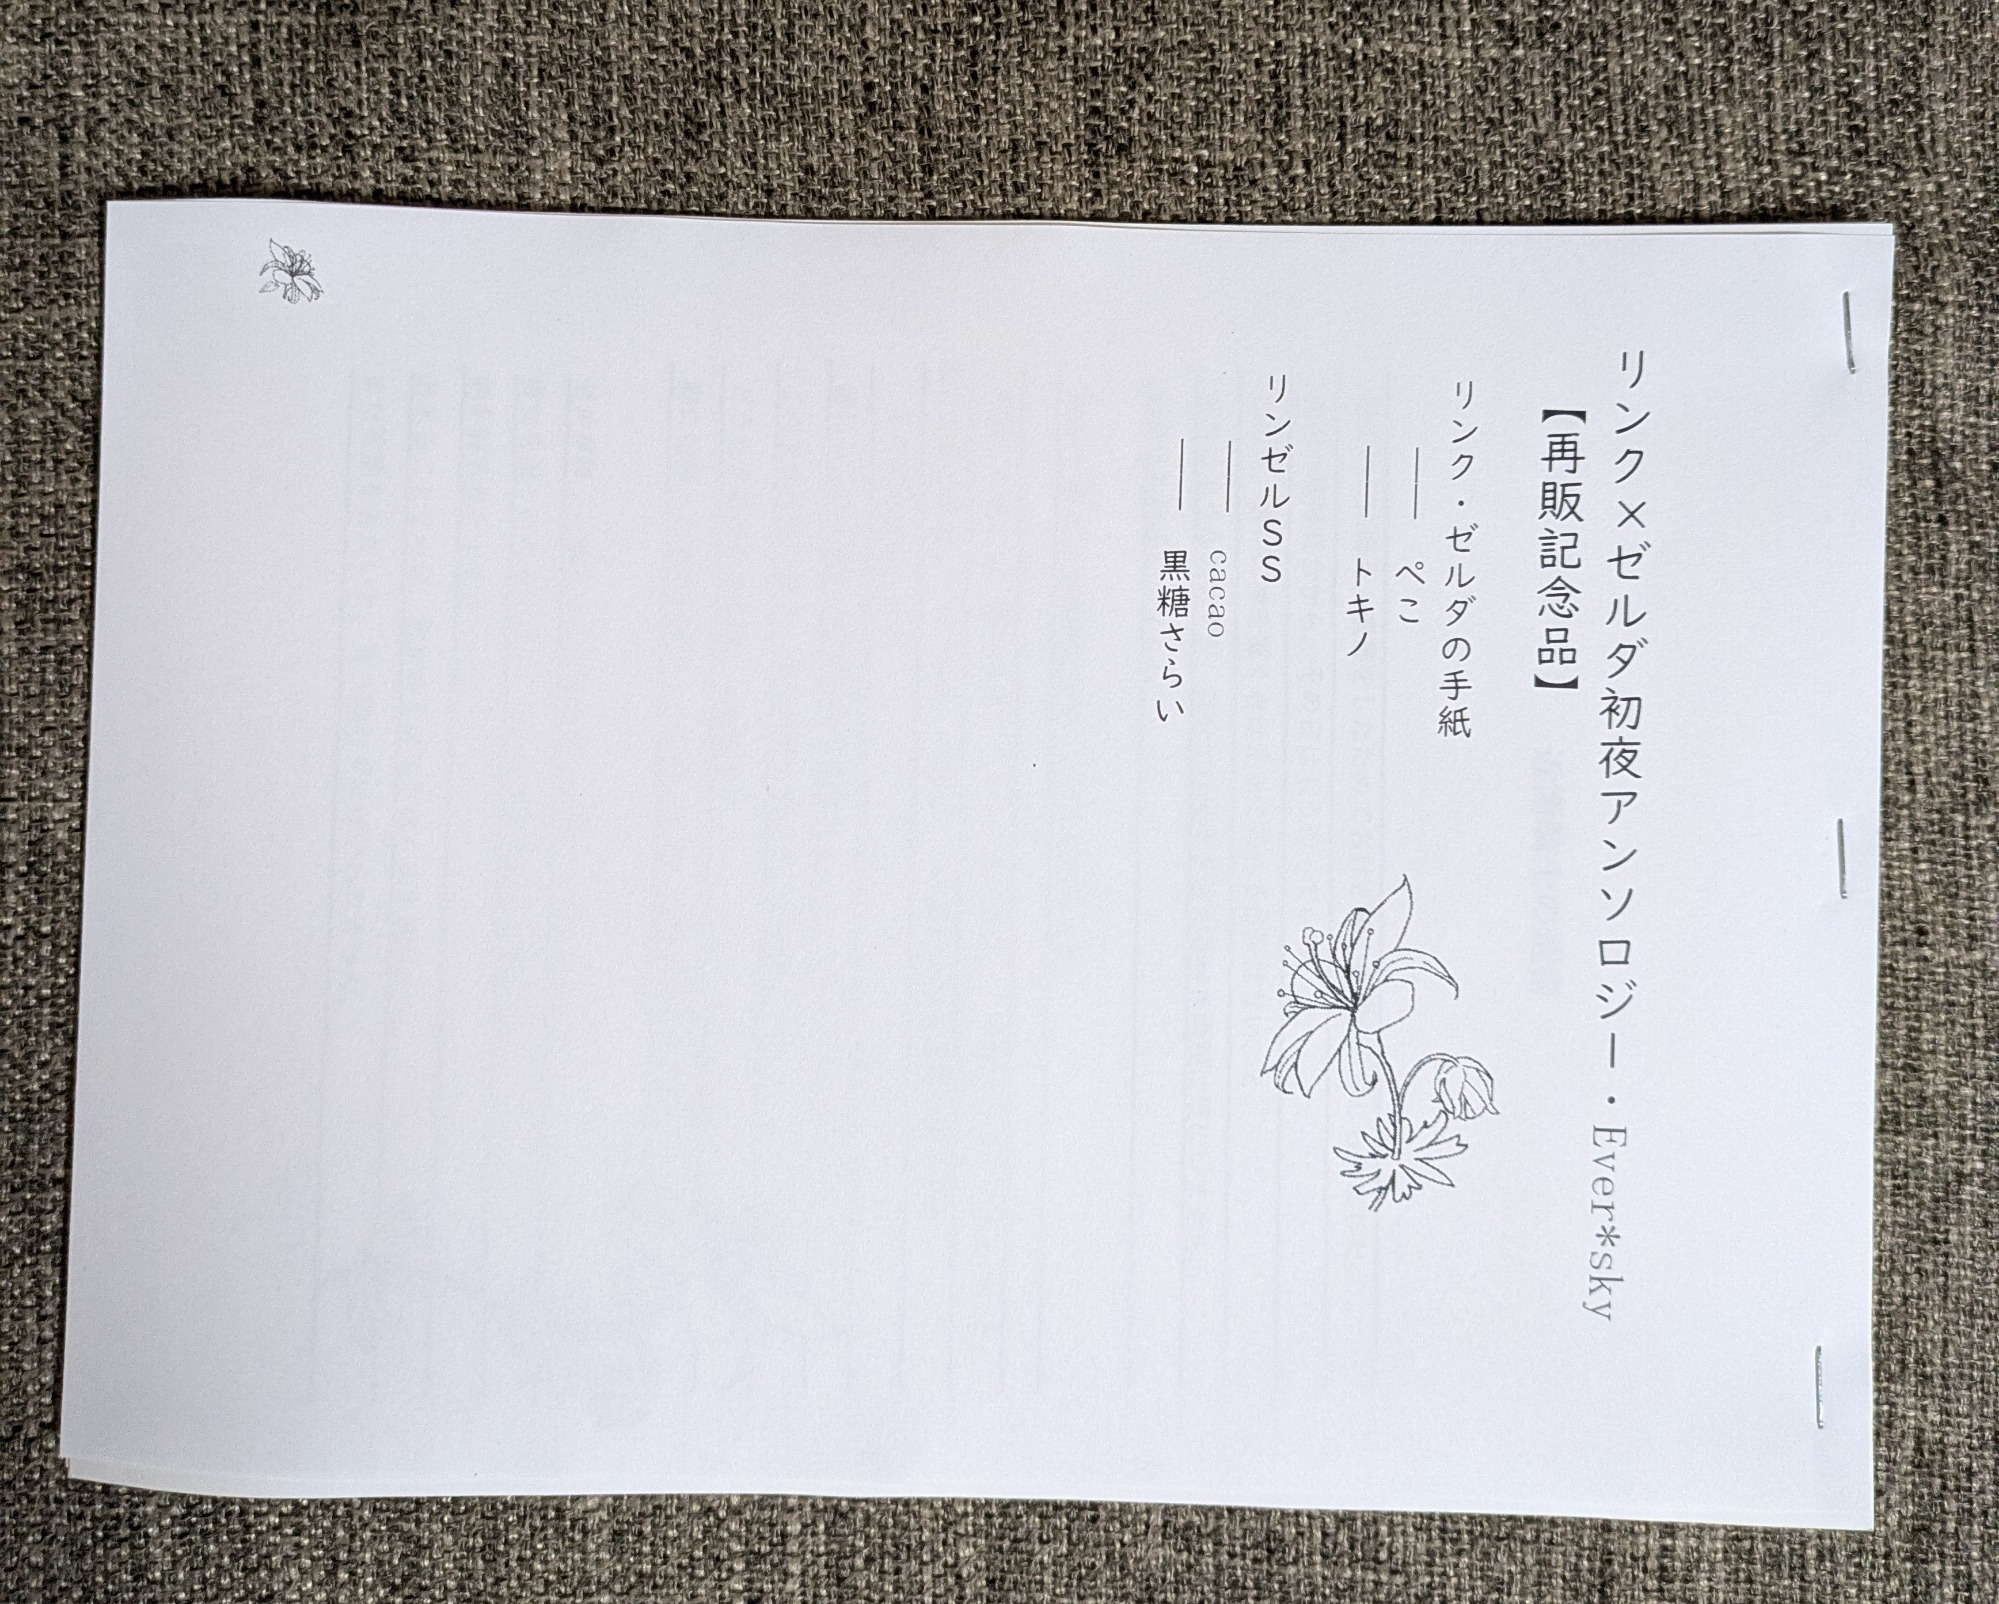 リンク×ゼルダ初夜アンソロジー・Ever*sky
【再販記念品】
リンク・ゼルダの手紙
―― ぺこ
―― トキノ
リンゼルSS
―― cacao
―― 黒糖さらい